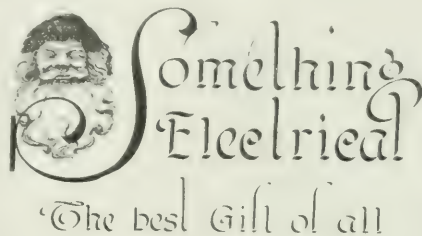 Something
Electrical
The best Gift of all